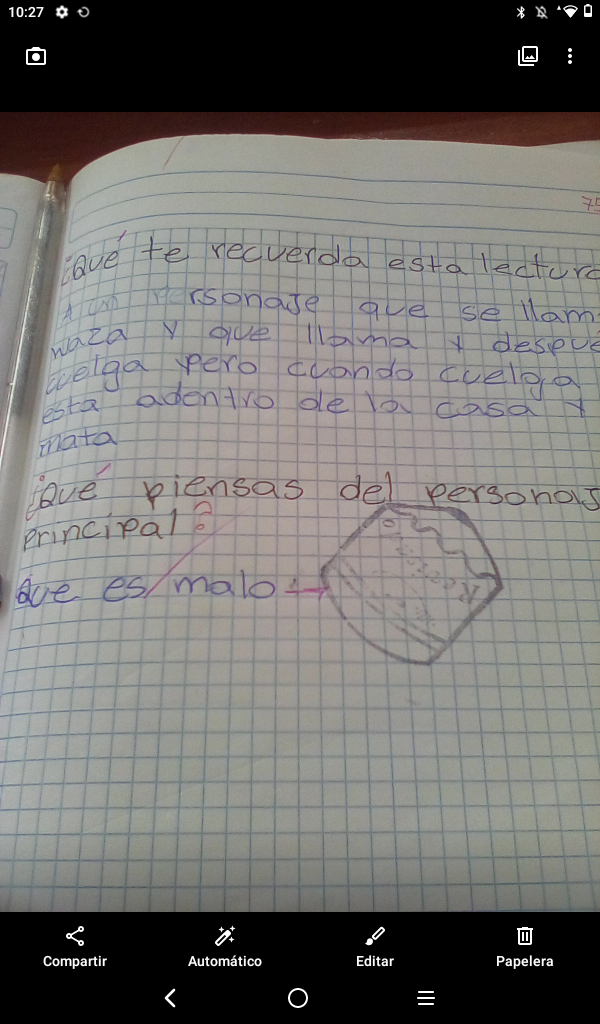 10:27
75
¿Qué te recuerda esta lectura
A un personaje que se llam
waza y que llama y despué
cuelga pero cuando cuelga
esta adentro de la casa y
mata
¿Qué piensas del personaj
principal?
Que es malo
Compartir Automático Editar Papelera